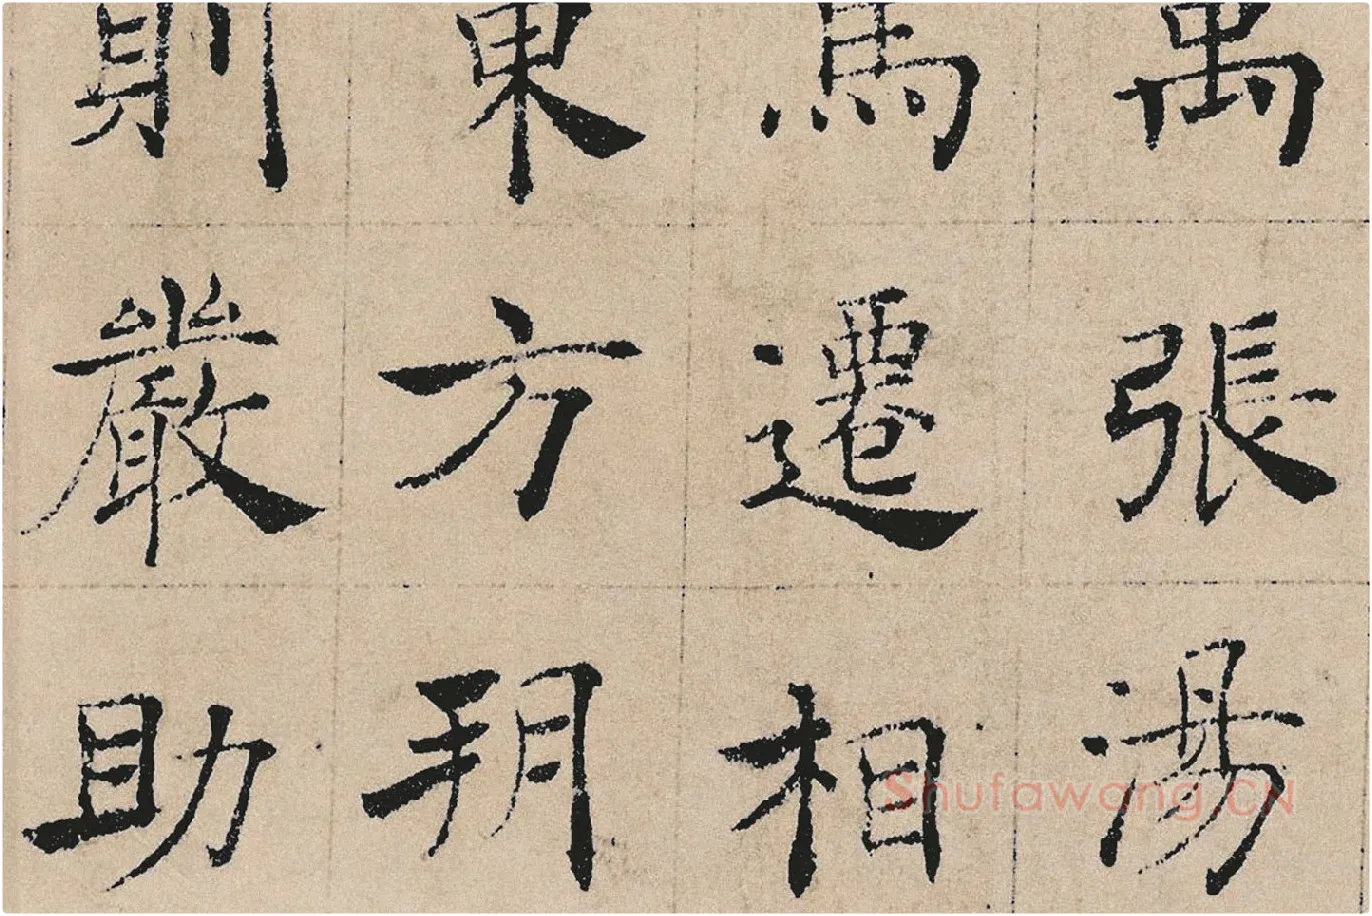 禹張湯
馬遷相
東方朔
則嚴助
Shufawang.CN